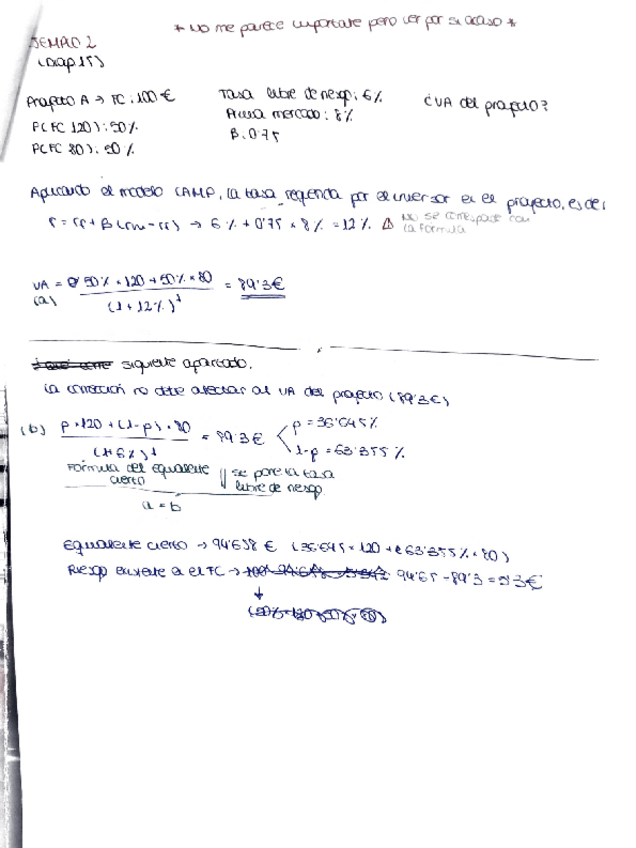 * No me parece importante pero ver por si acaso *
EJEMPLO 2
(Diap 15)
Proyecto A → FC: 100 €
Tasa libre de riesgo: 6%
¿VA del proyecto?
P(FC 120): 50%
Prima mercado: 8%
P(FC 80): 50%
β: 0'75
Aplicando el modelo CAMP, la tasa requerida por el inversor en el proyecto, es de:
r = rf + β(rm - rf) → 6% + 0'75 × 8% = 12% ⚠ No se corresponde con
la fórmula
VA = 50% × 120 + 50% × 80 = 89'3 €
(a) (1 + 12%)¹
siguiente apartado.
La corrección no debe afectar al VA del proyecto (89'3€)
(b) p × 120 + (1-p) × 80 = 89'3 € p = 36'645%
(1+6%)¹ 1-p = 63'355%
Fórmula del equivalente se pone la tasa
cierto libre de riesgo
a = b
Equivalente cierto → 94'658 € (36'645 × 120 + 63'355% × 80)
Riesgo existente en el FC → 94'65 - 89'3 = 5'3€